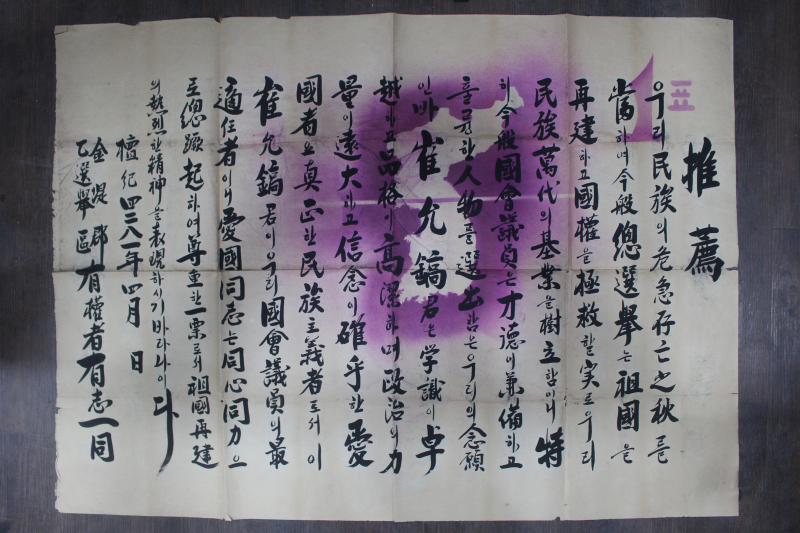 推薦
우리 民族의 危急存亡之秋를
當하여 今般 總選擧는 祖國을
再建하고 國權을 極救할 实로 우리
民族萬代의 基業을 樹立함이니 特
히 今般 國會議員은 才德이 兼備하고
훌륭한 人物를 選出함은 우리의 念願
인바 崔允鎬君은 学識이 卓
越하고 品格이 高潔하며 政治의 力
量이 遠大하고 信念이 確乎한 愛
國者요 真正한 民族主義者로서 이
崔允鎬君이 우리 國會議員의 最
適任者이니 愛國同志는 同心同力으
로 總蹶起하여 尊重한 一票로서 祖國再建
의 熱烈한 精神을 表現하시기 바라나이다
檀紀 四二八一年 四月 日
金堤郡
乙選擧區 有權者有志一同
1표